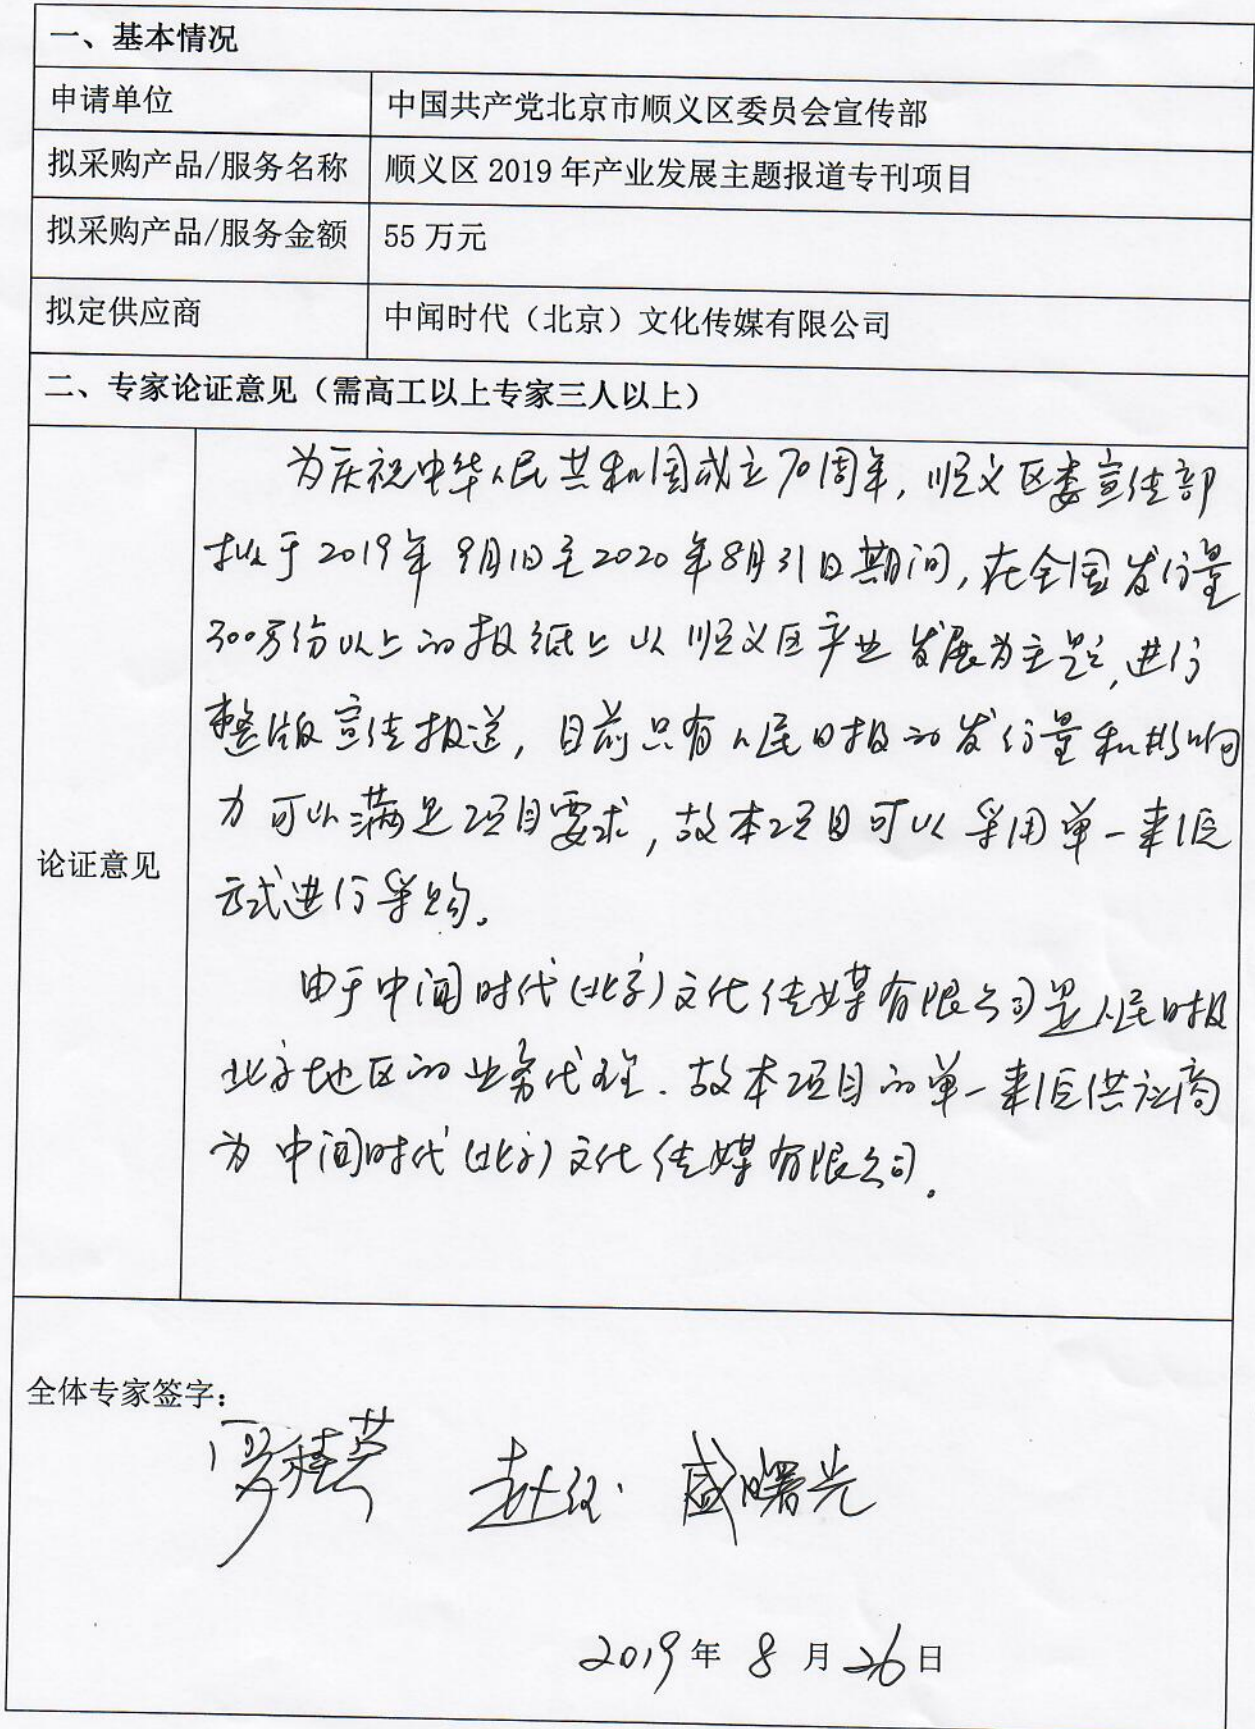 一、基本情况
申请单位 中国共产党北京市顺义区委员会宣传部
拟采购产品/服务名称 顺义区 2019 年产业发展主题报道专刊项目
拟采购产品/服务金额 55 万元
拟定供应商 中闻时代（北京）文化传媒有限公司
二、专家论证意见（需高工以上专家三人以上）
论证意见
为庆祝中华人民共和国成立70周年，顺义区委宣传部
拟于2019年9月1日至2020年8月31日期间，在全国发行量
300万份以上的报纸上以顺义区产业发展为主题，进行
整版宣传报道，目前只有人民日报的发行量和影响
力可以满足项目要求，故本项目可以采用单一来源
方式进行采购。
由于中闻时代（北京）文化传媒有限公司是人民日报
北京地区的业务代理．故本项目的单一来源供应商
为中闻时代（北京）文化传媒有限公司。
全体专家签字：
盛曙光
2019年 8 月 26 日